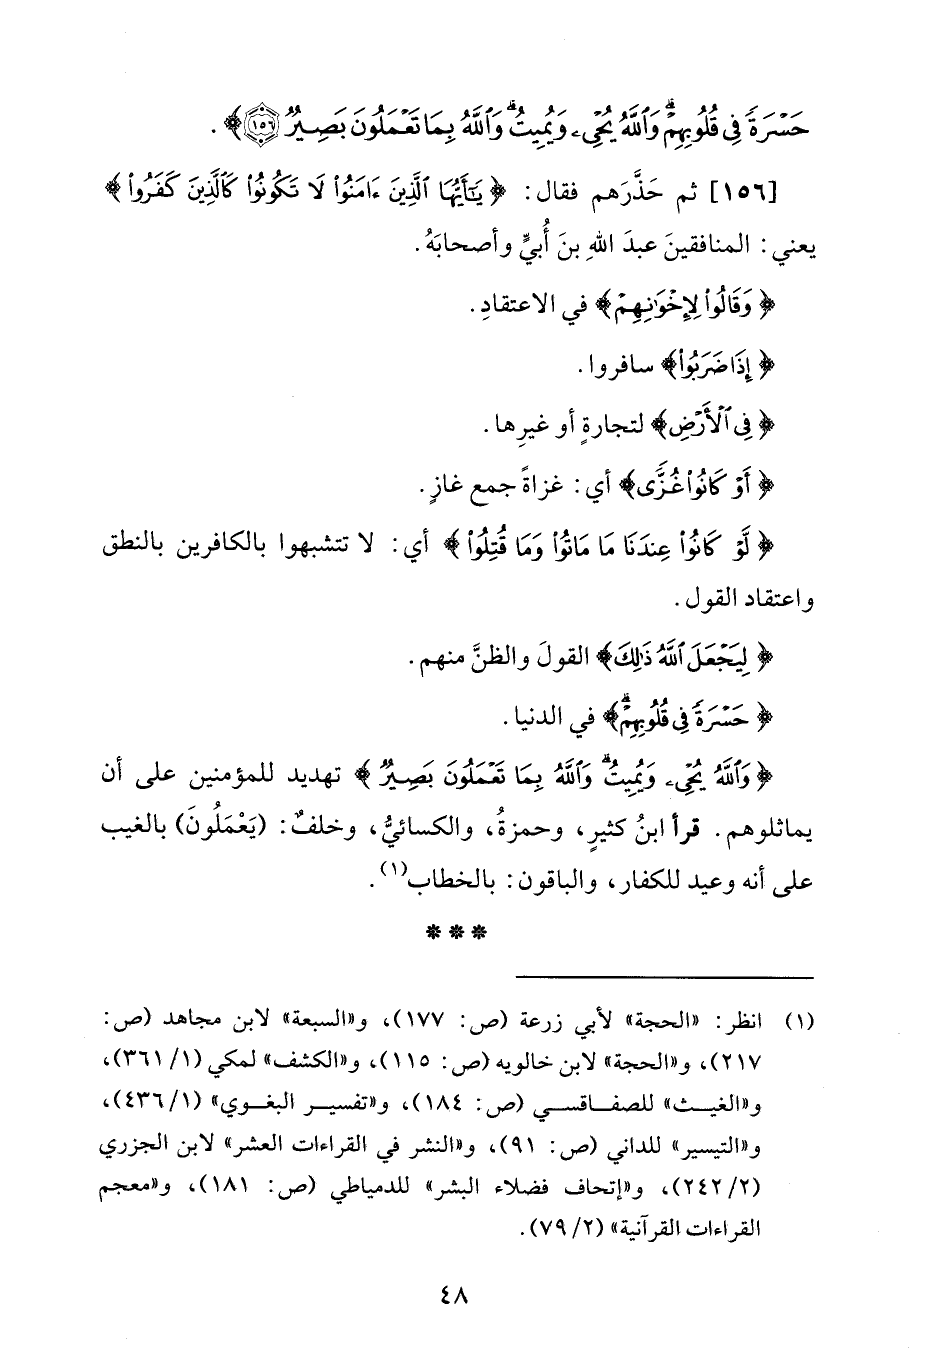 حَسْرَةً فِي قُلُوبِهِمْ ۗ وَٱللَّهُ يُحْيِۦ وَيُمِيتُ ۗ وَٱللَّهُ بِمَا تَعْمَلُونَ بَصِيرٌ ١٥٦﴾ .
[١٥٦] ثم حَذَّرَهم فقال: ﴿يَـٰٓأَيُّهَا ٱلَّذِينَ ءَامَنُوا۟ لَا تَكُونُوا۟ كَٱلَّذِينَ كَفَرُوا۟﴾
يعني: المنافقينَ عبدَ اللهِ بنَ أُبيٍّ وأصحابَهُ.
﴿وَقَالُوا۟ لِإِخْوَٰنِهِمْ﴾ في الاعتقادِ.
﴿إِذَا ضَرَبُوا۟﴾ سافروا.
﴿فِي ٱلْأَرْضِ﴾ لتجارةٍ أو غيرِها.
﴿أَوْ كَانُوا۟ غُزًّى﴾ أي: غزاةً جمع غازٍ.
﴿لَّوْ كَانُوا۟ عِندَنَا مَا مَاتُوا۟ وَمَا قُتِلُوا۟﴾ أي: لا تتشبهوا بالكافرين بالنطق
واعتقاد القول.
﴿لِيَجْعَلَ ٱللَّهُ ذَٰلِكَ﴾ القولَ والظنَّ منهم.
﴿حَسْرَةً فِي قُلُوبِهِمْ ۗ﴾ في الدنيا.
﴿وَٱللَّهُ يُحْيِۦ وَيُمِيتُ ۗ وَٱللَّهُ بِمَا تَعْمَلُونَ بَصِيرٌ﴾ تهديد للمؤمنين على أن
يماثلوهم. قرأ ابنُ كثيرٍ، وحمزةُ، والكسائيُّ، وخلفٌ: (يَعْمَلُونَ) بالغيب
على أنه وعيد للكفار، والباقون: بالخطاب(١).
***
(١) انظر: «الحجة» لأبي زرعة (ص: ١٧٧)، و«السبعة» لابن مجاهد (ص:
٢١٧)، و«الحجة» لابن خالويه (ص: ١١٥)، و«الكشف» لمكي (١/ ٣٦١)،
و«الغيث» للصفاقسي (ص: ١٨٤)، و«تفسير البغوي» (١/ ٤٣٦)،
و«التيسير» للداني (ص: ٩١)، و«النشر في القراءات العشر» لابن الجزري
(٢/ ٢٤٢)، و«إتحاف فضلاء البشر» للدمياطي (ص: ١٨١)، و«معجم
القراءات القرآنية» (٢/ ٧٩).
٤٨